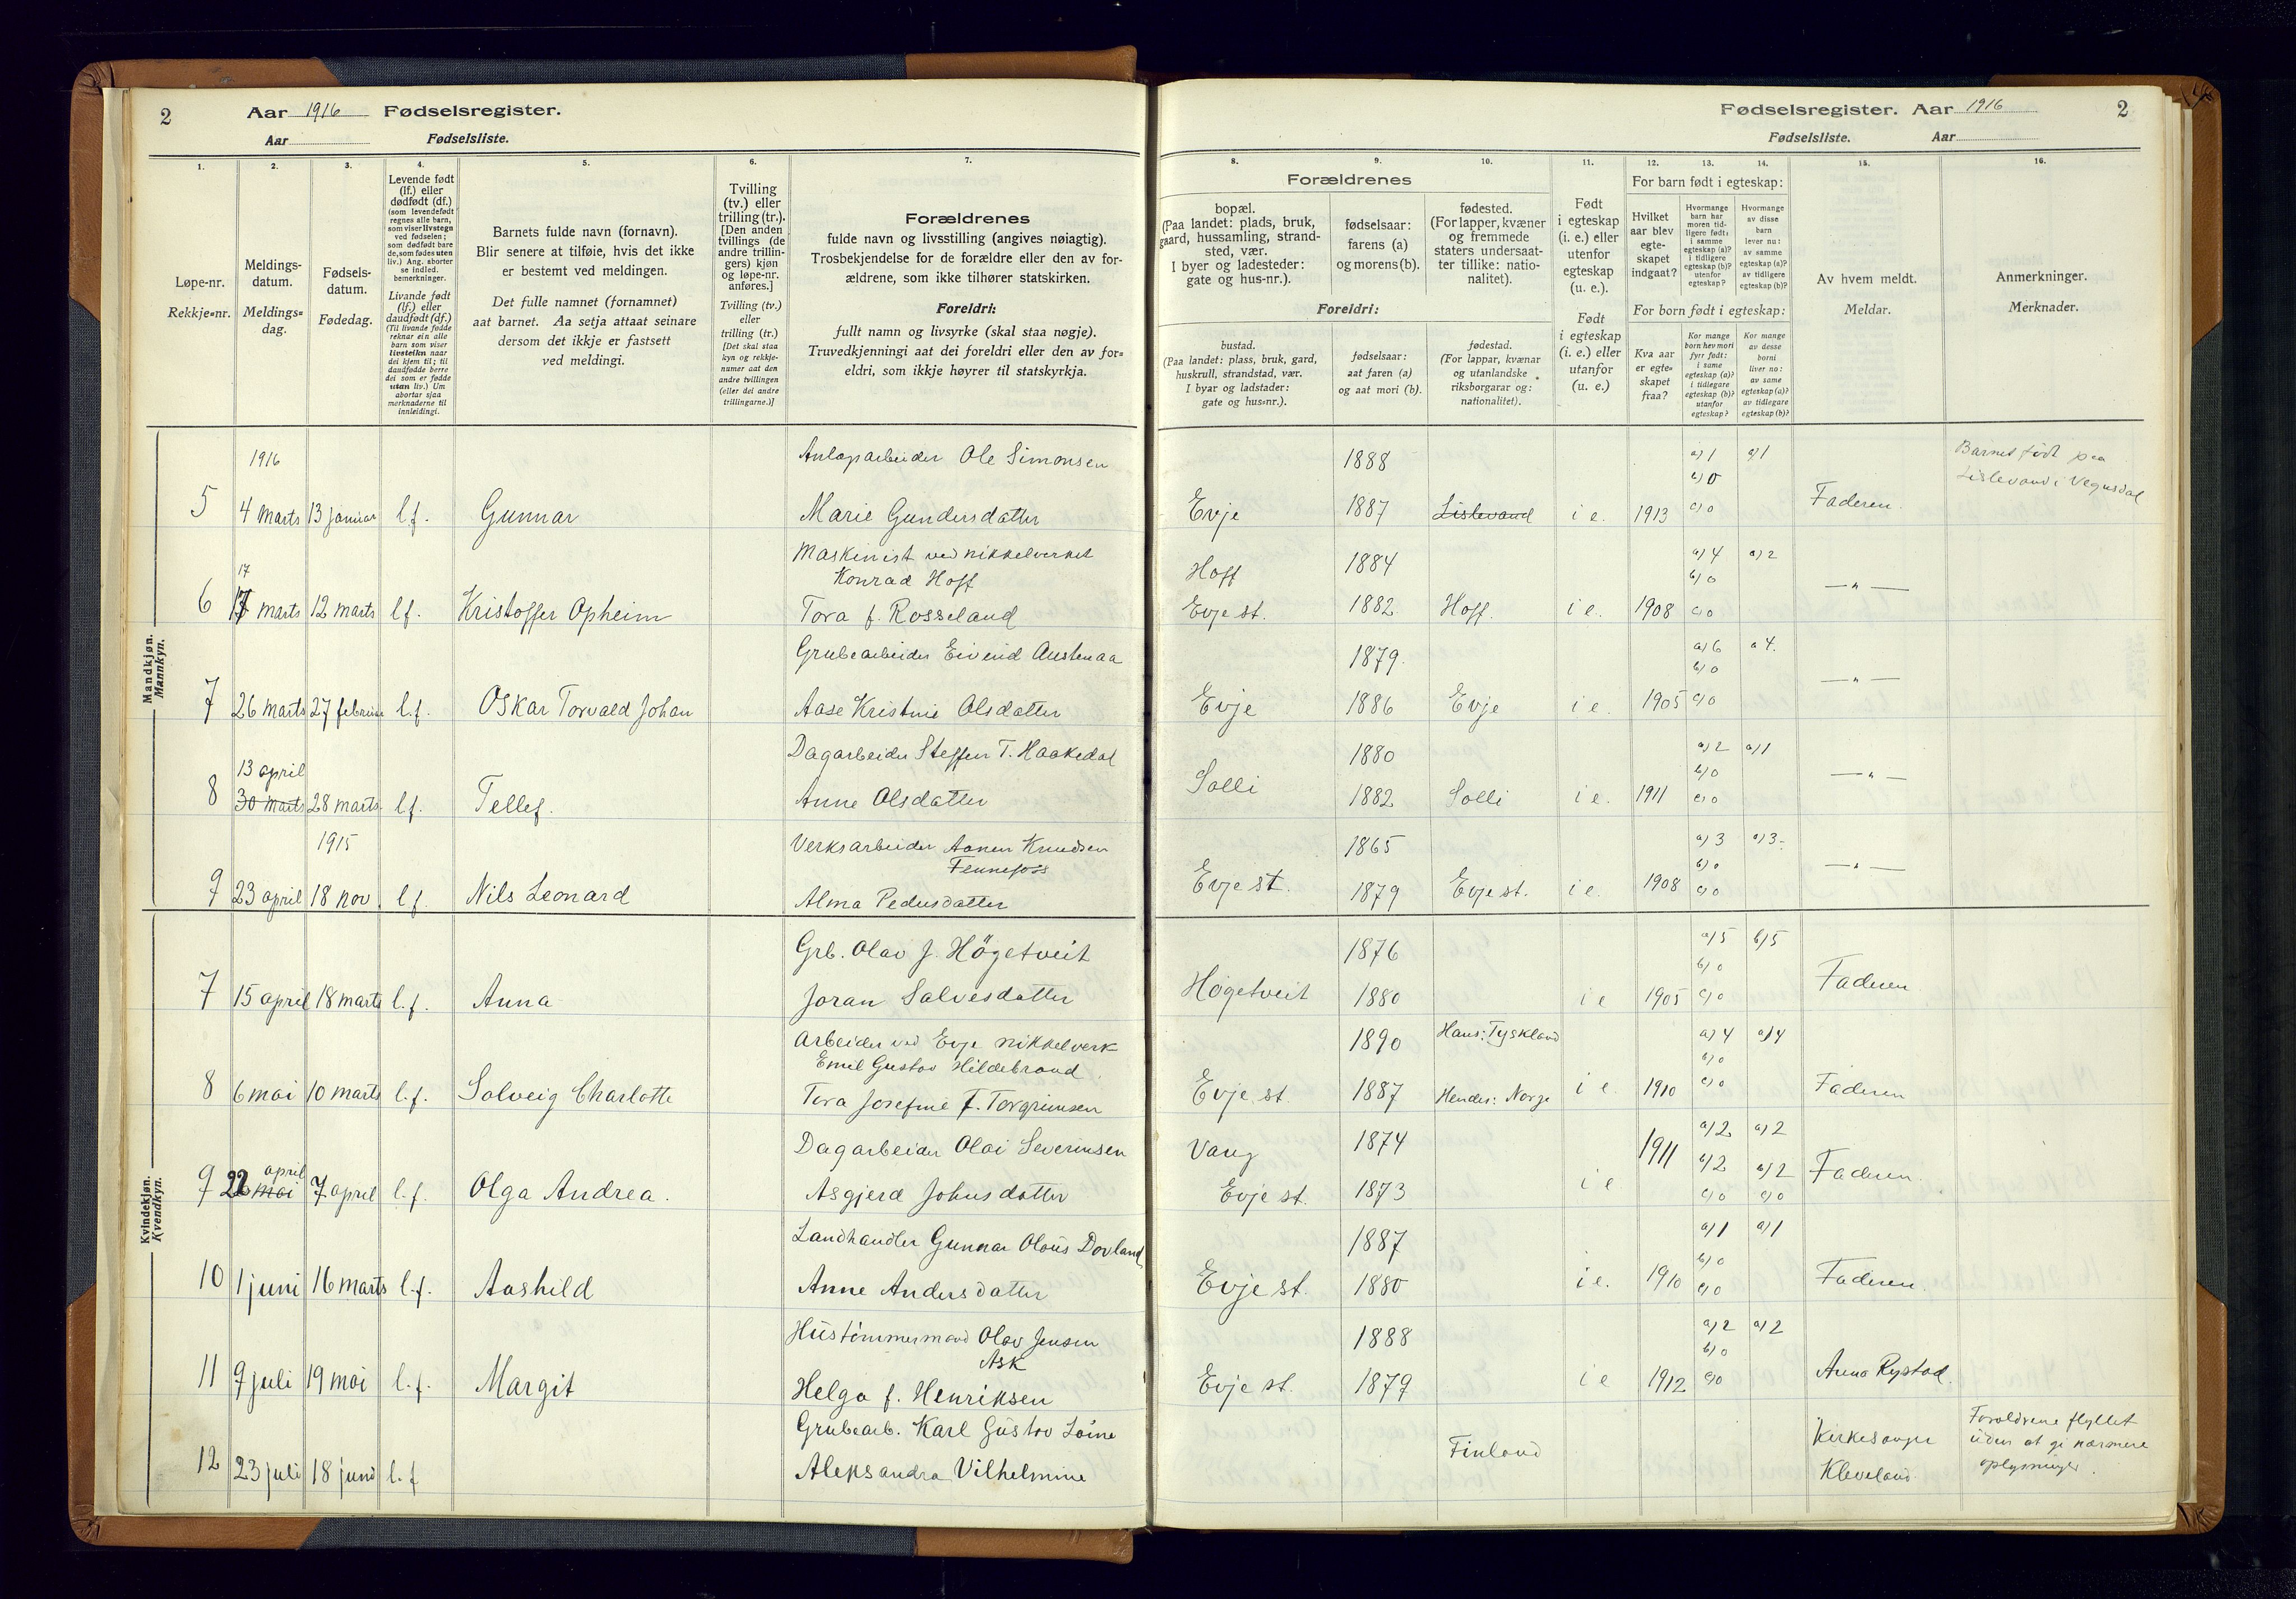 2 Aar 1916 Fødselsregister.
Aar Fødselsliste.
Fødselsregister. Aar 1916 2
Fødselsliste. Aar
1. 2. 3. 4. 5. 6. 7.
Løpe-nr.
Rekkje=nr.
Meldings-
datum.
Meldings=
dag.
Fødsels-
datum.
Fødedag.
Levende født
(lf.) eller
dødfødt (df.)
(som levendefødt
regnes alle barn,
som viser livstegn
ved fødselen;
som dødfødt bare
de, som fødes uten
liv.) Ang. aborter
se indled.
bemerkninger.
Livande født
(lf.) eller
daudfødt (df.)
(Til livande fødde
reknar ein alle
barn som viser
livsteikn naar
dei kjem til; til
daudfødde berre
dei som er fødde
utan liv.) Um
abortar sjaa
merknaderne til
innleidingi.
Barnets fulde navn (fornavn).
Blir senere at tilføie, hvis det ikke
er bestemt ved meldingen.
Det fulle namnet (fornamnet)
aat barnet. Aa setja attaat seinare
dersom det ikkje er fastsett
ved meldingi.
Tvilling
(tv.) eller
trilling (tr.).
[Den anden
tvillings (de
andre trillin-
gers) kjøn
og løpe-nr.
anføres.]
Tvilling (tv.)
eller
trilling (tr.)
[Det skal staa
kyn og rekkje-
numer aat den
andre tvillingen
(eller dei andre
trillingarne.)]
Forældrenes
fulde navn og livsstilling (angives nøiagtig).
Trosbekjendelse for de forældre eller den av for-
ældrene, som ikke tilhører statskirken.
Foreldri:
fullt namn og livsyrke (skal staa nøgje).
Truvedkjenningi aat dei foreldri eller den av for=
eldri, som ikkje høyrer til statskyrkja.
8. 9. 10. 11. 12. 13. 14. 15. 16.
Forældrenes
bopæl.
(Paa landet: plads, bruk,
gaard, hussamling, strand-
sted, vær.
I byer og ladesteder:
gate og hus-nr.).
fødselsaar:
farens (a)
og morens (b).
fødested.
(For lapper, kvæner
og fremmede
staters undersaat-
ter tillike: natio-
nalitet).
Foreldri:
bustad.
(Paa landet: plass, bruk, gard,
huskrull, strandstad, vær.
I byar og ladstader:
gate og hus=nr.).
fødselsaar:
aat faren (a)
og aat mori (b).
fødestad.
(For lappar, kvænar
og utanlandske
riksborgarar og:
nationalitet).
Født
i egteskap
(i. e.) eller
utenfor
egteskap
(u. e.).
Født
i egteskap
(i. e.) eller
utanfor
(u. e.)
For barn født i egteskap:
Hvilket
aar blev
egte-
skapet
indgaat?
Hvormange
barn har
moren tid-
ligere født:
i samme
egteskap (a)?
i tidligere
egteskap (b)?
utenfor
egteskap?
Hvormange
av disse
barn
lever nu:
av samme
egteskap (a)?
av tidligere
egteskap (b)?
For born født i egteskap:
Kva aar
er egte=
skapet
fraa?
Kor mange
born hev mori
fyrr født:
i same
egteskap (a)?
i tidlegare
egteskap (b)?
utanfor
egteskap?
Kor mange
av desse
borni
liver no:
av same
egteskap (a)?
av tidlegare
egteskap (b)?
Av hvem meldt.
Meldar.
Anmerkninger.
Merknader.
Mandkjøn.
Mannkyn.
1916 Ole Simonsen 1888 a) 1 a) 1 Barnet født paa
b) 0 Lislevand i Vegusdal
5 4 marts 13 januar l.f. Gunnar Marie Gundersdatter Evje 1887 Lislevand i e. 1913 c) 0 Faderen.
Maskinist ved nikkelverket
17 Konrad Hoff Hoff 1884 a) 4 a) 2
b) 0
6 17 marts 12 marts l.f. Kristoffer Opheim Tora f. Rosseland Evje st. 1882 Hoff. i e. 1908 c) 0 — " —
Grubearbeider Eivind Austenaa 1879. a) 6 a 4.
b) 0
7 26 marts 27 februar l.f. Oskar Torvald Johan Aase Kristine Olsdatter Evje 1886 Evje i e. 1905 c) 0 — " —
13 april Dagarbeider Steffen T. Haakedal 1880 a) 2 a) 1
b) 0
8 30 marts 28 marts. l.f. Tellef. Anne Olsdatter Solli 1882 Solli i e. 1911 c) 0 — " —
1915 Verksarbeider Aanen Knudsen 1865 a) 3 a) 3.
Fennefoss b) 0
9 23 april 18 nov. l.f. Nils Leonard Alma Pedersdatter Evje st. 1879 Evje st. i e. 1908 c) 0 — " —
Kvindekjøn.
Kvendkyn.
Grb. Olav J. Högetveit 1876 a) 5 b) 5
b) 0
7 15 april 18 marts l.f. Anna Joran Salvesdatter Høgetveit 1880 i e 1905 c) 0 Faderen
Arbeider ved Evje nikkelverk 1890 Hans: Tyskland a) 4 a) 4
Emil Gustav Hildebrand. b) 0
8 6 mai 10 marts l.f. Solveig Charlotte Tora Josefine f. Torgrimsen Evje st. 1887 Hendes: Norge i e. 1910 c) 0 Faderen
Dagarbeider Olai Severinsen Vang 1874 1911 a) 2 a) 2
april b) 2 b) 2
9 22 mai 7 april l.f. Olga Andrea. Asgjerd Johnsdatter Evje st. 1873 i e c) 0 c) 0 Faderen.
Landhandler Gunnar Olaus Dovland 1887 a) 1 a) 1
b) 0
10 1 juni 16 marts l.f. Aashild Anne Andersdatter Evje st. 1880 i e. 1910 c) 0 Faderen.
Hustømmermand Olav Jensen 1888 a) 2 a) 2
Ask b) 0
11 9 juli 19 mai l.f. Margit Helga f. Henriksen Evje st. 1879 i e 1912 c) 0 Anna Rystad.
Grubearb. Karl Gustav Laine Finland Kirkesanger Forældrene flyttet
uden at gi nærmere
12 23 juli 18 juni l.f Aleksandra Vilhelmine Kleveland oplysninger.